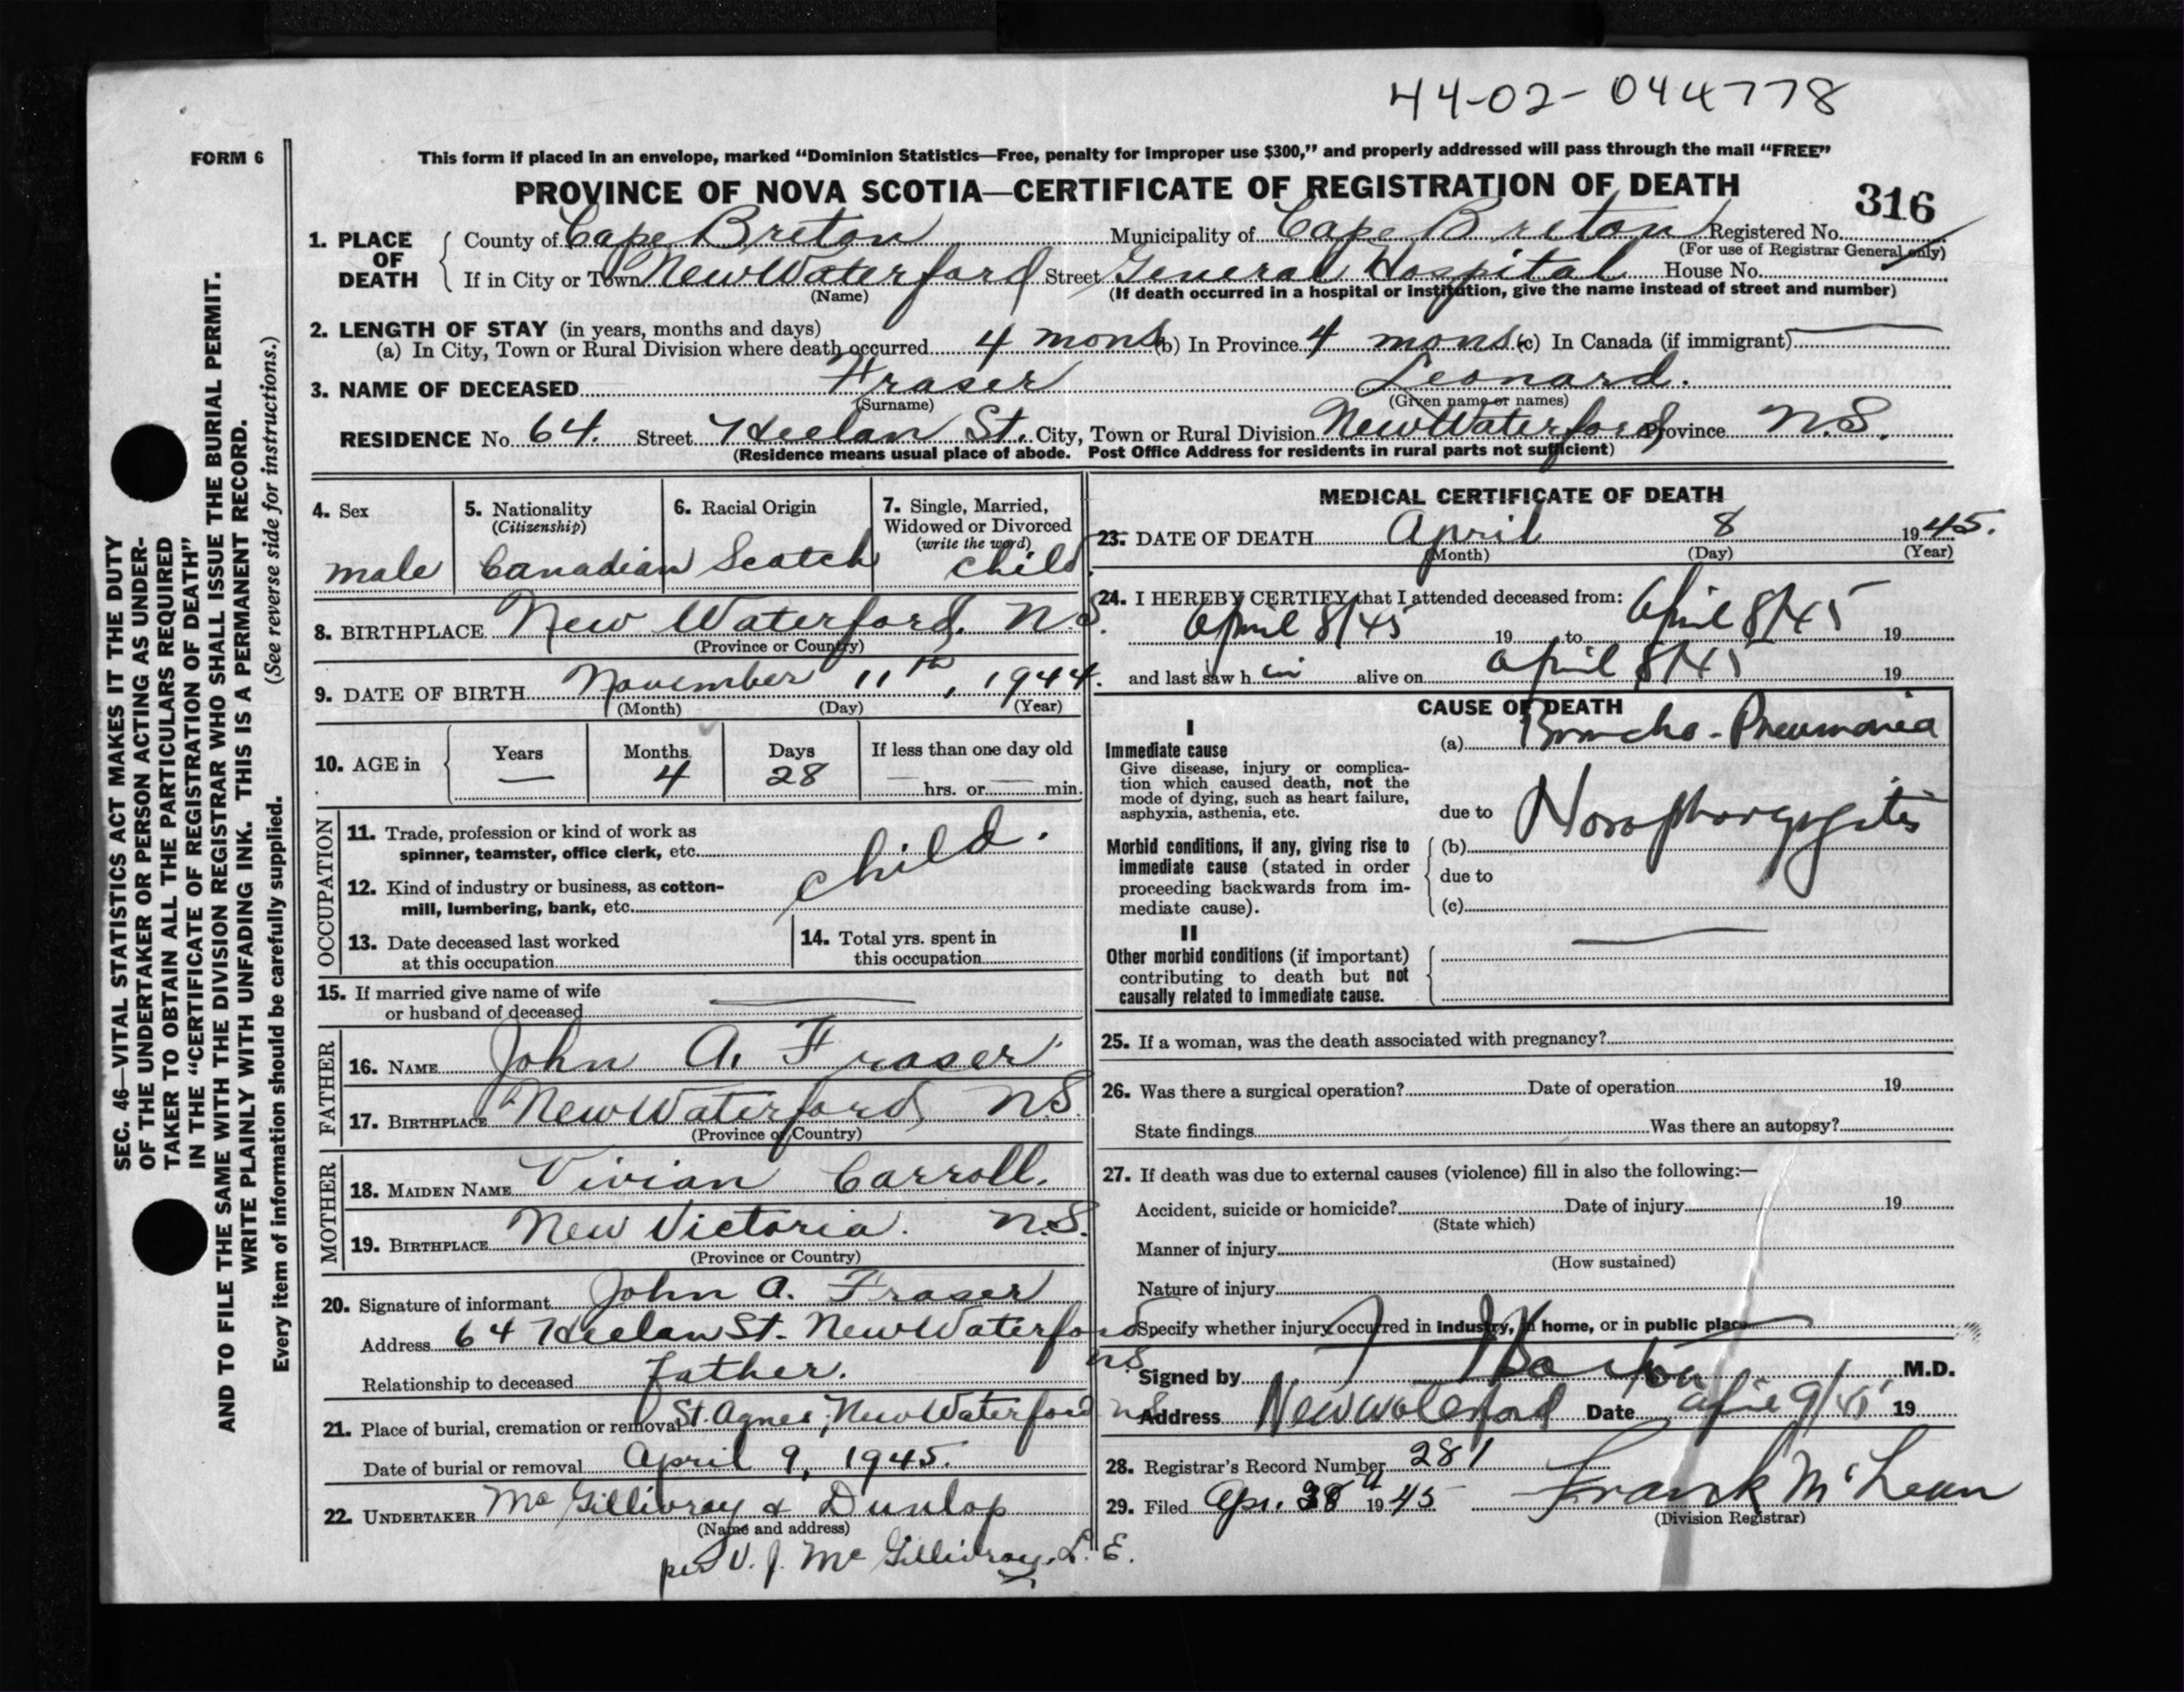 44-02-044778
FORM 6
This form if placed in an envelope, marked “Dominion Statistics—Free, penalty for improper use $300,” and properly addressed will pass through the mail “FREE”
PROVINCE OF NOVA SCOTIA—CERTIFICATE OF REGISTRATION OF DEATH
316
1. PLACE OF DEATH
County of Cape Breton Municipality of Cape Breton Registered No.
(For use of Registrar General only)
If in City or Town New Waterford Street General Hospital House No.
(Name) (If death occurred in a hospital or institution, give the name instead of street and number)
2. LENGTH OF STAY (in years, months and days)
(a) In City, Town or Rural Division where death occurred 4 mons (b) In Province 4 mons. (c) In Canada (if immigrant)
3. NAME OF DECEASED Fraser Leonard.
(Surname) (Given name or names)
RESIDENCE No. 64. Street Heelan St. City, Town or Rural Division New Waterford Province N.S.
(Residence means usual place of abode. Post Office Address for residents in rural parts not sufficient)
4. Sex
male
5. Nationality
(Citizenship)
Canadian
6. Racial Origin
Scotch
7. Single, Married,
Widowed or Divorced
(write the word)
child.
8. BIRTHPLACE New Waterford, N.S.
(Province or Country)
9. DATE OF BIRTH November 11th, 1944.
(Month) (Day) (Year)
10. AGE in
Years Months Days If less than one day old
— 4 28 — hrs. or — min.
OCCUPATION
11. Trade, profession or kind of work as
spinner, teamster, office clerk, etc. child.
12. Kind of industry or business, as cotton-
mill, lumbering, bank, etc.
13. Date deceased last worked
at this occupation
14. Total yrs. spent in
this occupation
15. If married give name of wife
or husband of deceased
FATHER
16. NAME John A. Fraser
17. BIRTHPLACE New Waterford, N.S.
(Province or Country)
MOTHER
18. MAIDEN NAME Vivian Carroll.
19. BIRTHPLACE New Victoria. N.S.
(Province or Country)
20. Signature of informant John A. Fraser
Address 64 Heelan St. New Waterford
N.S.
Relationship to deceased Father.
21. Place of burial, cremation or removal St. Agnes, New Waterford N.S.
Date of burial or removal April 9, 1945.
22. UNDERTAKER McGillivray & Dunlop
(Name and address)
per V. J. McGillivray. L. E.
MEDICAL CERTIFICATE OF DEATH
23. DATE OF DEATH April 8 1945.
(Month) (Day) (Year)
24. I HEREBY CERTIFY that I attended deceased from:
April 8/45 19 to April 8/45 19
and last saw h im alive on April 8/45 19
CAUSE OF DEATH
I
Immediate cause
Give disease, injury or complica-
tion which caused death, not the
mode of dying, such as heart failure,
asphyxia, asthenia, etc.
(a) Broncho-Pneumonia
due to
Morbid conditions, if any, giving rise to
immediate cause (stated in order
proceeding backwards from im-
mediate cause).
(b)
due to
(c)
II
Other morbid conditions (if important)
contributing to death but not
causally related to immediate cause.
25. If a woman, was the death associated with pregnancy?
26. Was there a surgical operation? Date of operation 19
State findings Was there an autopsy?
27. If death was due to external causes (violence) fill in also the following:—
Accident, suicide or homicide? Date of injury 19
(State which)
Manner of injury
(How sustained)
Nature of injury
Specify whether injury occurred in industry, in home, or in public place
Signed by M.D.
Address New Waterford Date April 9/45 19
28. Registrar's Record Number 281
29. Filed Apr. 1945 Frank McLean
(Division Registrar)
SEC. 46—VITAL STATISTICS ACT MAKES IT THE DUTY
OF THE UNDERTAKER OR PERSON ACTING AS UNDER-
TAKER TO OBTAIN ALL THE PARTICULARS REQUIRED
IN THE “CERTIFICATE OF REGISTRATION OF DEATH”
AND TO FILE THE SAME WITH THE DIVISION REGISTRAR WHO SHALL ISSUE THE BURIAL PERMIT.
WRITE PLAINLY WITH UNFADING INK. THIS IS A PERMANENT RECORD.
Every item of information should be carefully supplied. (See reverse side for instructions.)